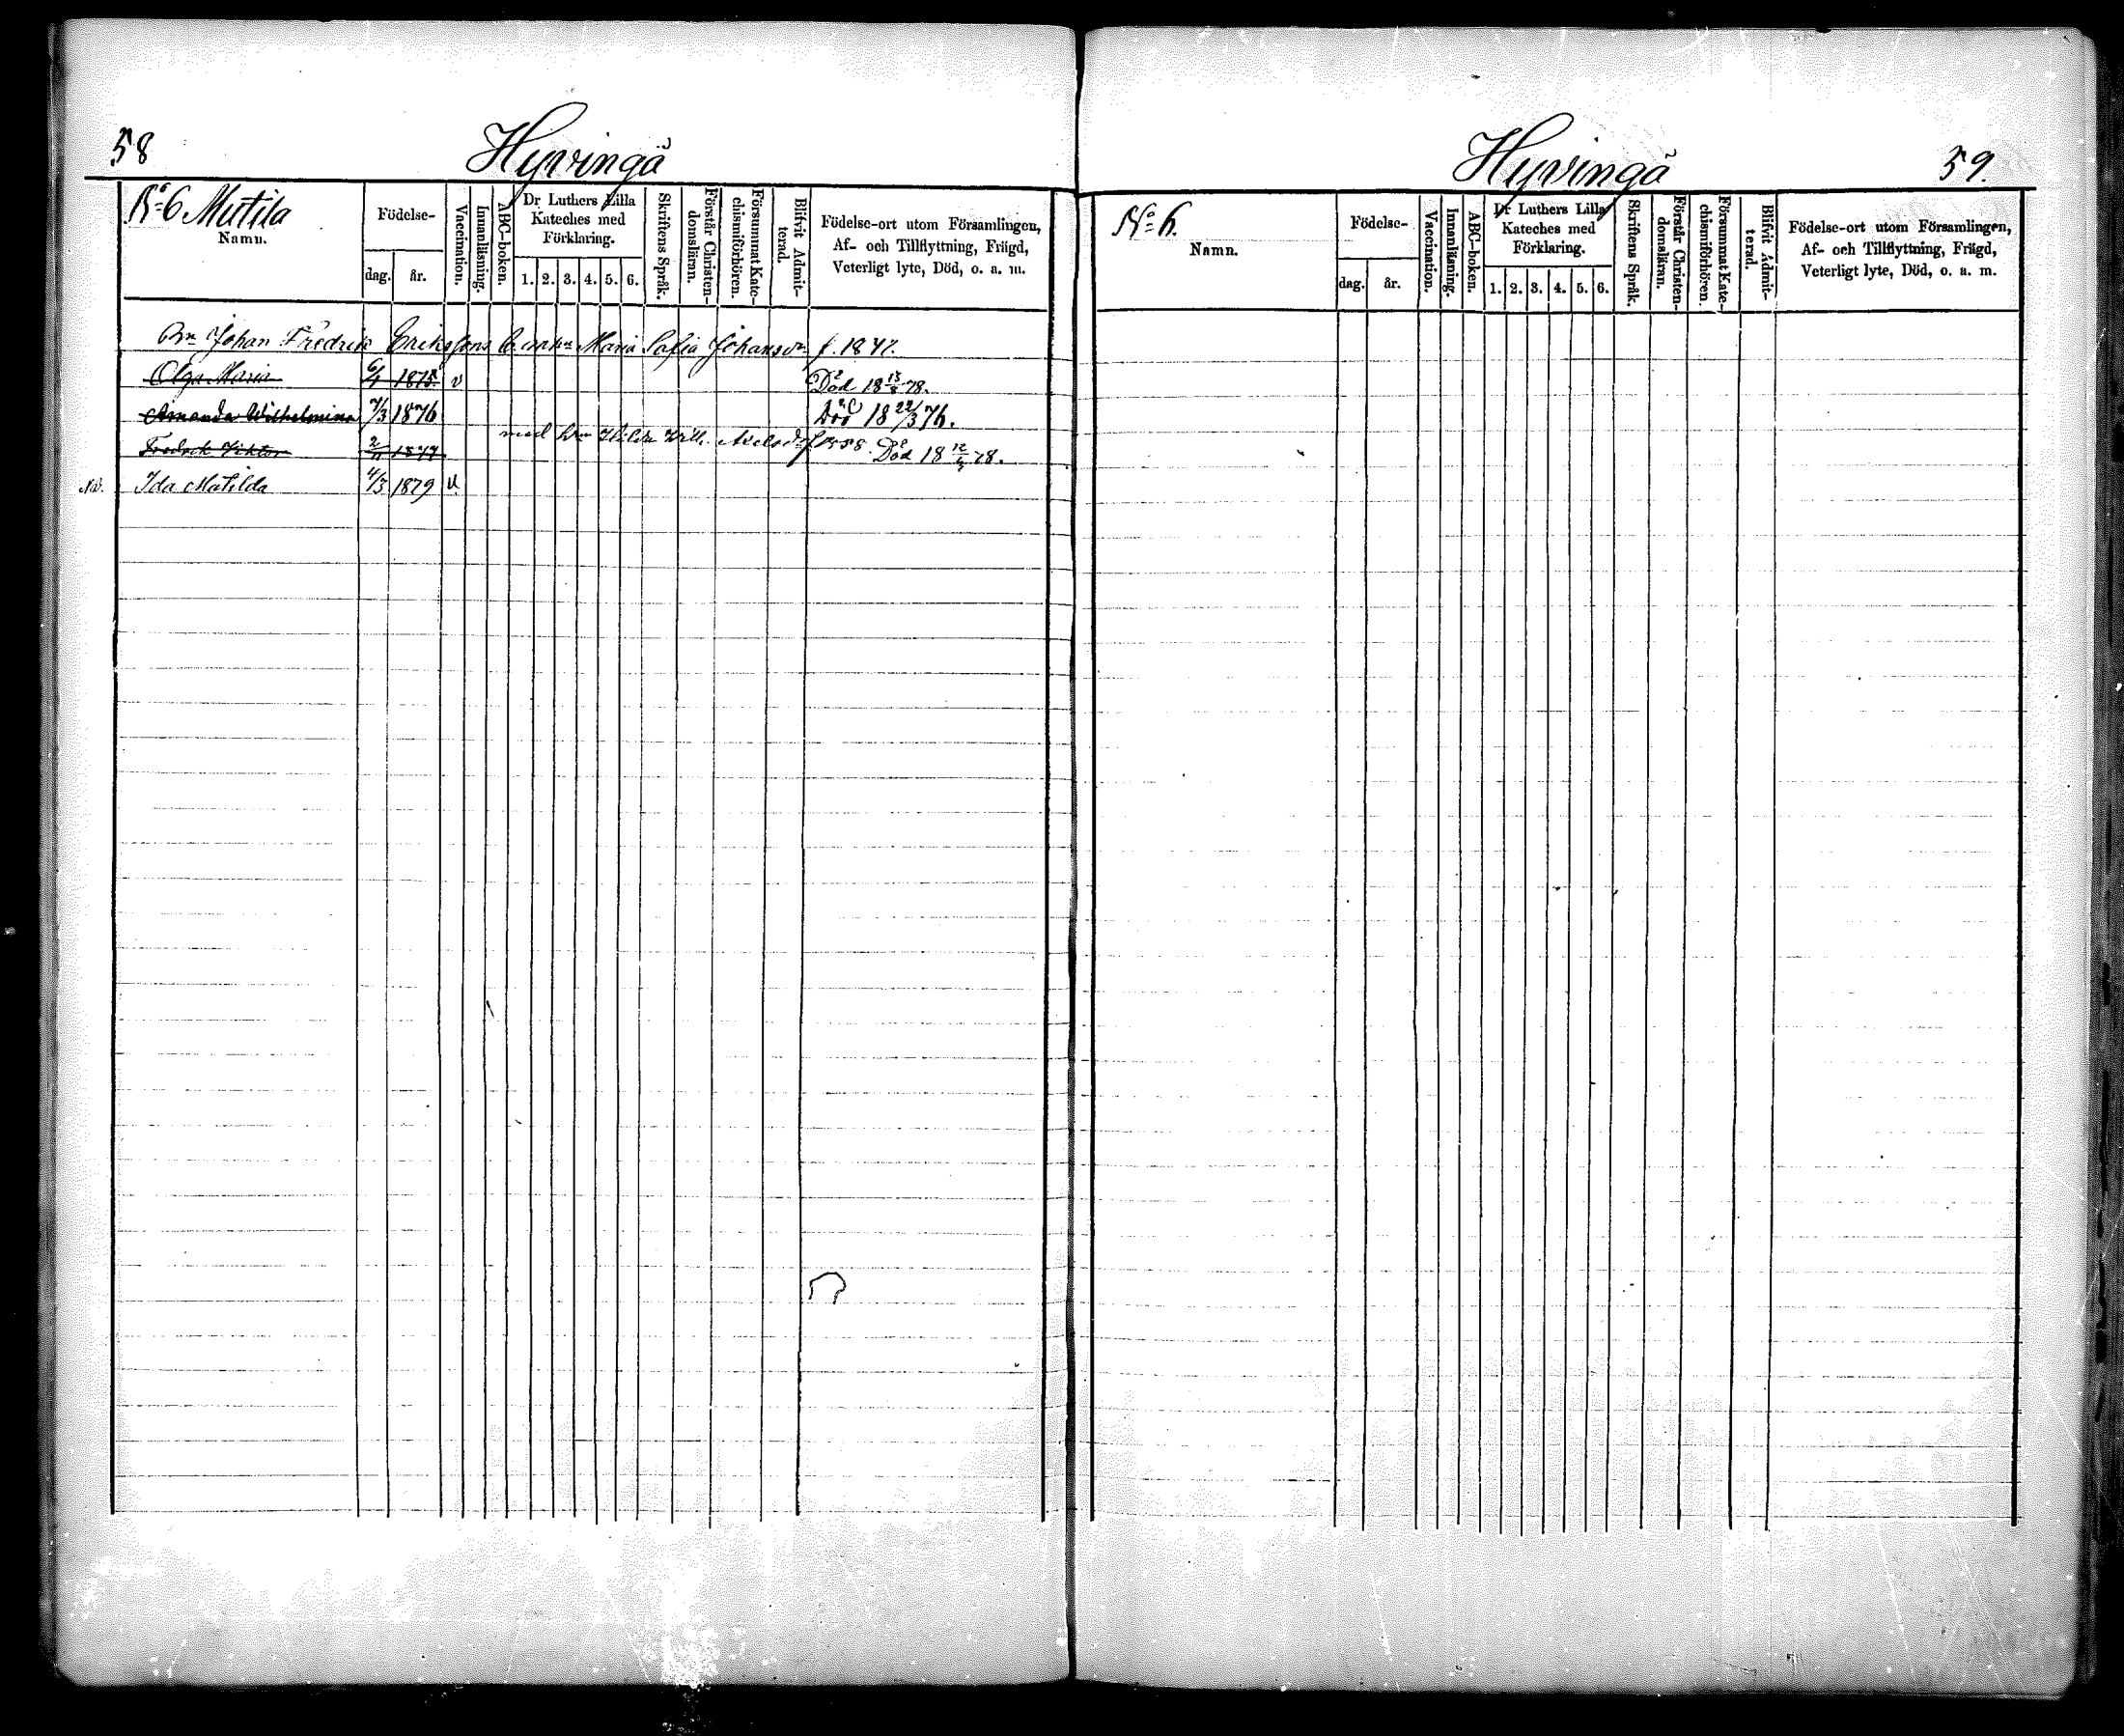 58
Hyvingä
No 6 Mutila
Namn.
Födelse-
dag.
år.
Vaccination.
Innanläsning.
ABC-boken.
Dr Luthers Lilla
Kateches med
Förklaring.
1. 2. 3. 4. 5. 6.
Skriftens Språk.
Förstår Christen-
domsläran.
Försummat Kate-
chismiförhören.
Blifvit Admit-
terad.
Födelse-ort utom Församlingen,
Af- och Tillflyttning, Frägd,
Veterligt lyte, Död, o. a. m.
Johan Fredrik Erikssons Maria Sofia f. 1847.
Olga Maria 1875 v Död 18 78.
Amanda Wilhelmina 7/3 1876 Död 18 22/3 76.
med f 1858
Fredrik Viktor Död 18 78.
Ida Matilda 4/3 1879 v.
Hyvingä
59.
No 6.
Namn.
Födelse-
dag.
år.
Vaccination.
Innanläsning.
ABC-boken.
Dr Luthers Lilla
Kateches med
Förklaring.
1. 2. 3. 4. 5. 6.
Skriftens Språk.
Förstår Christen-
domsläran.
Försummat Kate-
chismiförhören.
Blifvit Admit-
terad.
Födelse-ort utom Församlingen,
Af- och Tillflyttning, Frägd,
Veterligt lyte, Död, o. a. m.